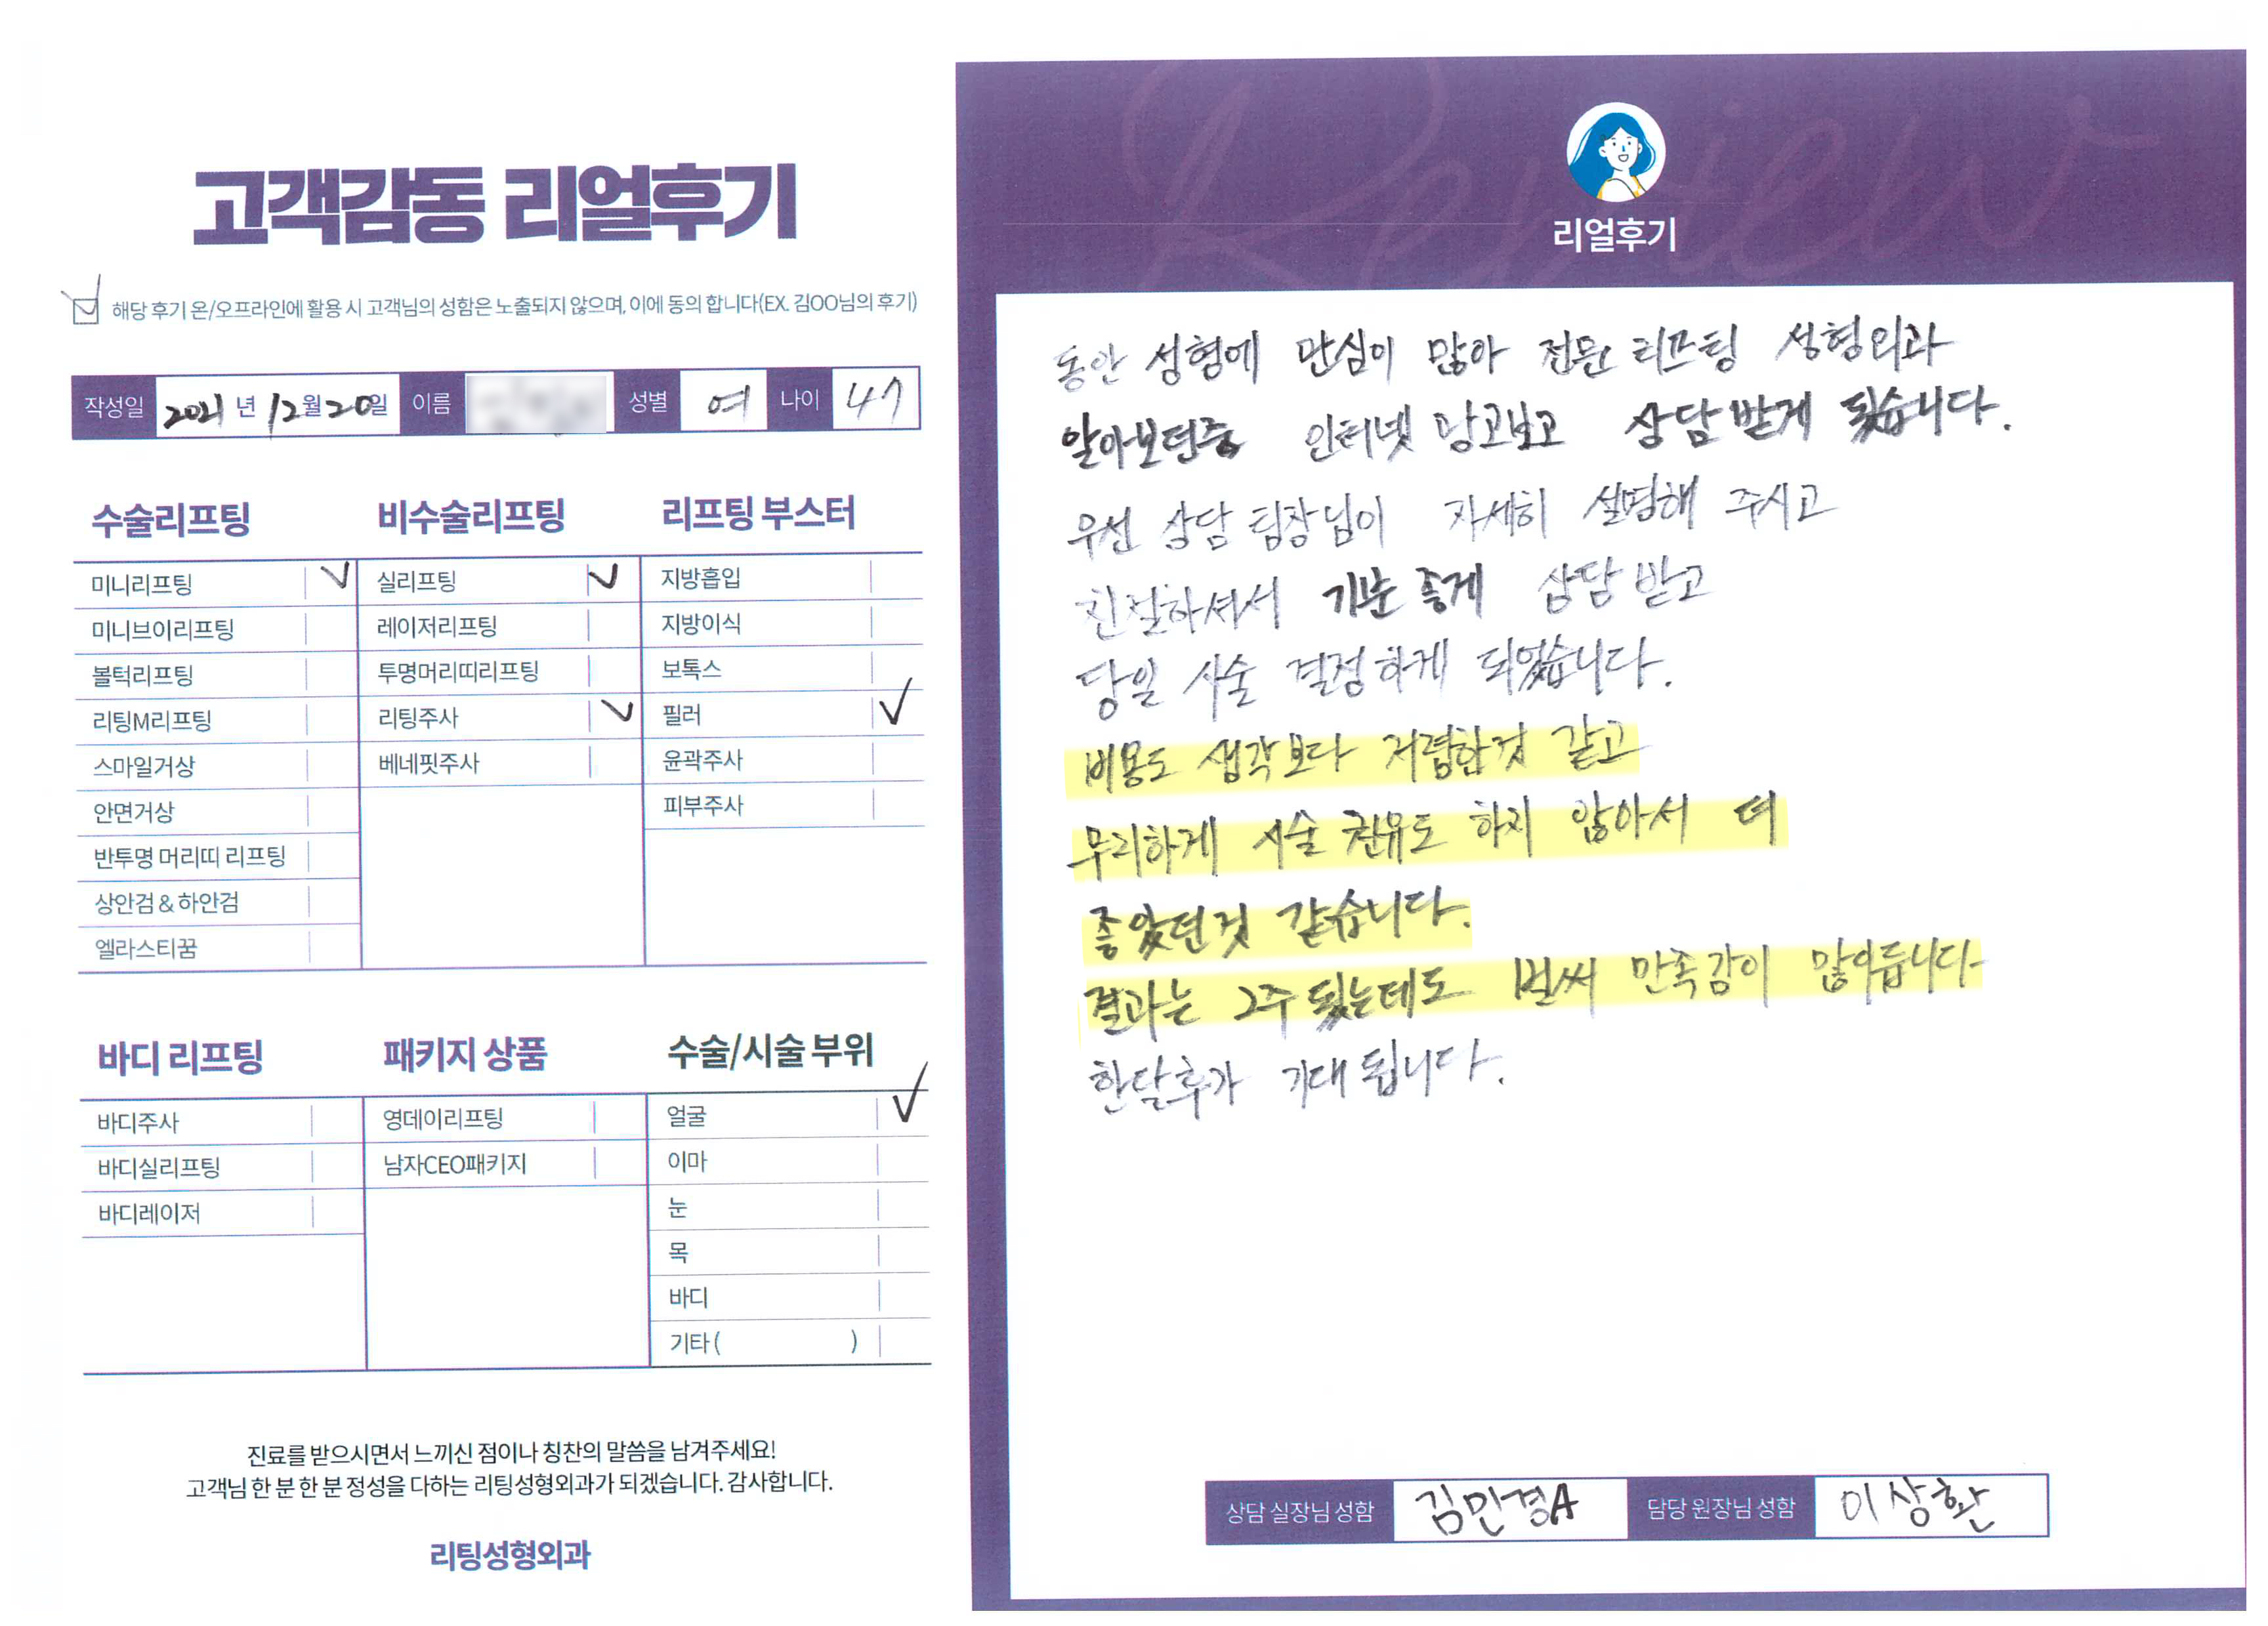 고객감동 리얼후기
해당 후기 온/오프라인에 활용 시 고객님의 성함은 노출되지 않으며, 이에 동의 합니다(EX. 김OO님의 후기)
작성일 2021년 12월 20일 이름 성별 여 나이 47
수술리프팅
미니리프팅
미니브이리프팅
볼턱리프팅
리팅M리프팅
스마일거상
안면거상
반투명 머리띠 리프팅
상안검 & 하안검
엘라스티꿈
비수술리프팅
실리프팅
레이저리프팅
투명머리띠리프팅
리팅주사
베네핏주사
리프팅 부스터
지방흡입
지방이식
보톡스
필러
윤곽주사
피부주사
바디 리프팅
바디주사
바디실리프팅
바디레이저
패키지 상품
영데이리프팅
남자CEO패키지
수술/시술 부위
얼굴
이마
눈
목
바디
기타 ( )
진료를 받으시면서 느끼신 점이나 칭찬의 말씀을 남겨주세요!
고객님 한 분 한 분 정성을 다하는 리팅성형외과가 되겠습니다. 감사합니다.
리팅성형외과
Review
리얼후기
동안 성형에 관심이 많아 전문 리프팅 성형외과
알아보던중 인터넷 광고보고 상담받게 됬습니다.
우선 상담 팀장님이 자세히 설명해 주시고
친절하셔서 기분 좋게 상담 받고
당일 시술 결정하게 되었습니다.
비용도 생각보다 저렴한것 같고
무리하게 시술 권유도 하지 않아서 더
좋았던것 같습니다.
결과는 2주 됬는데도 벌써 만족감이 많이듭니다
한달후가 기대 됩니다.
상담 실장님 성함 김민경A 담당 원장님 성함 이상환